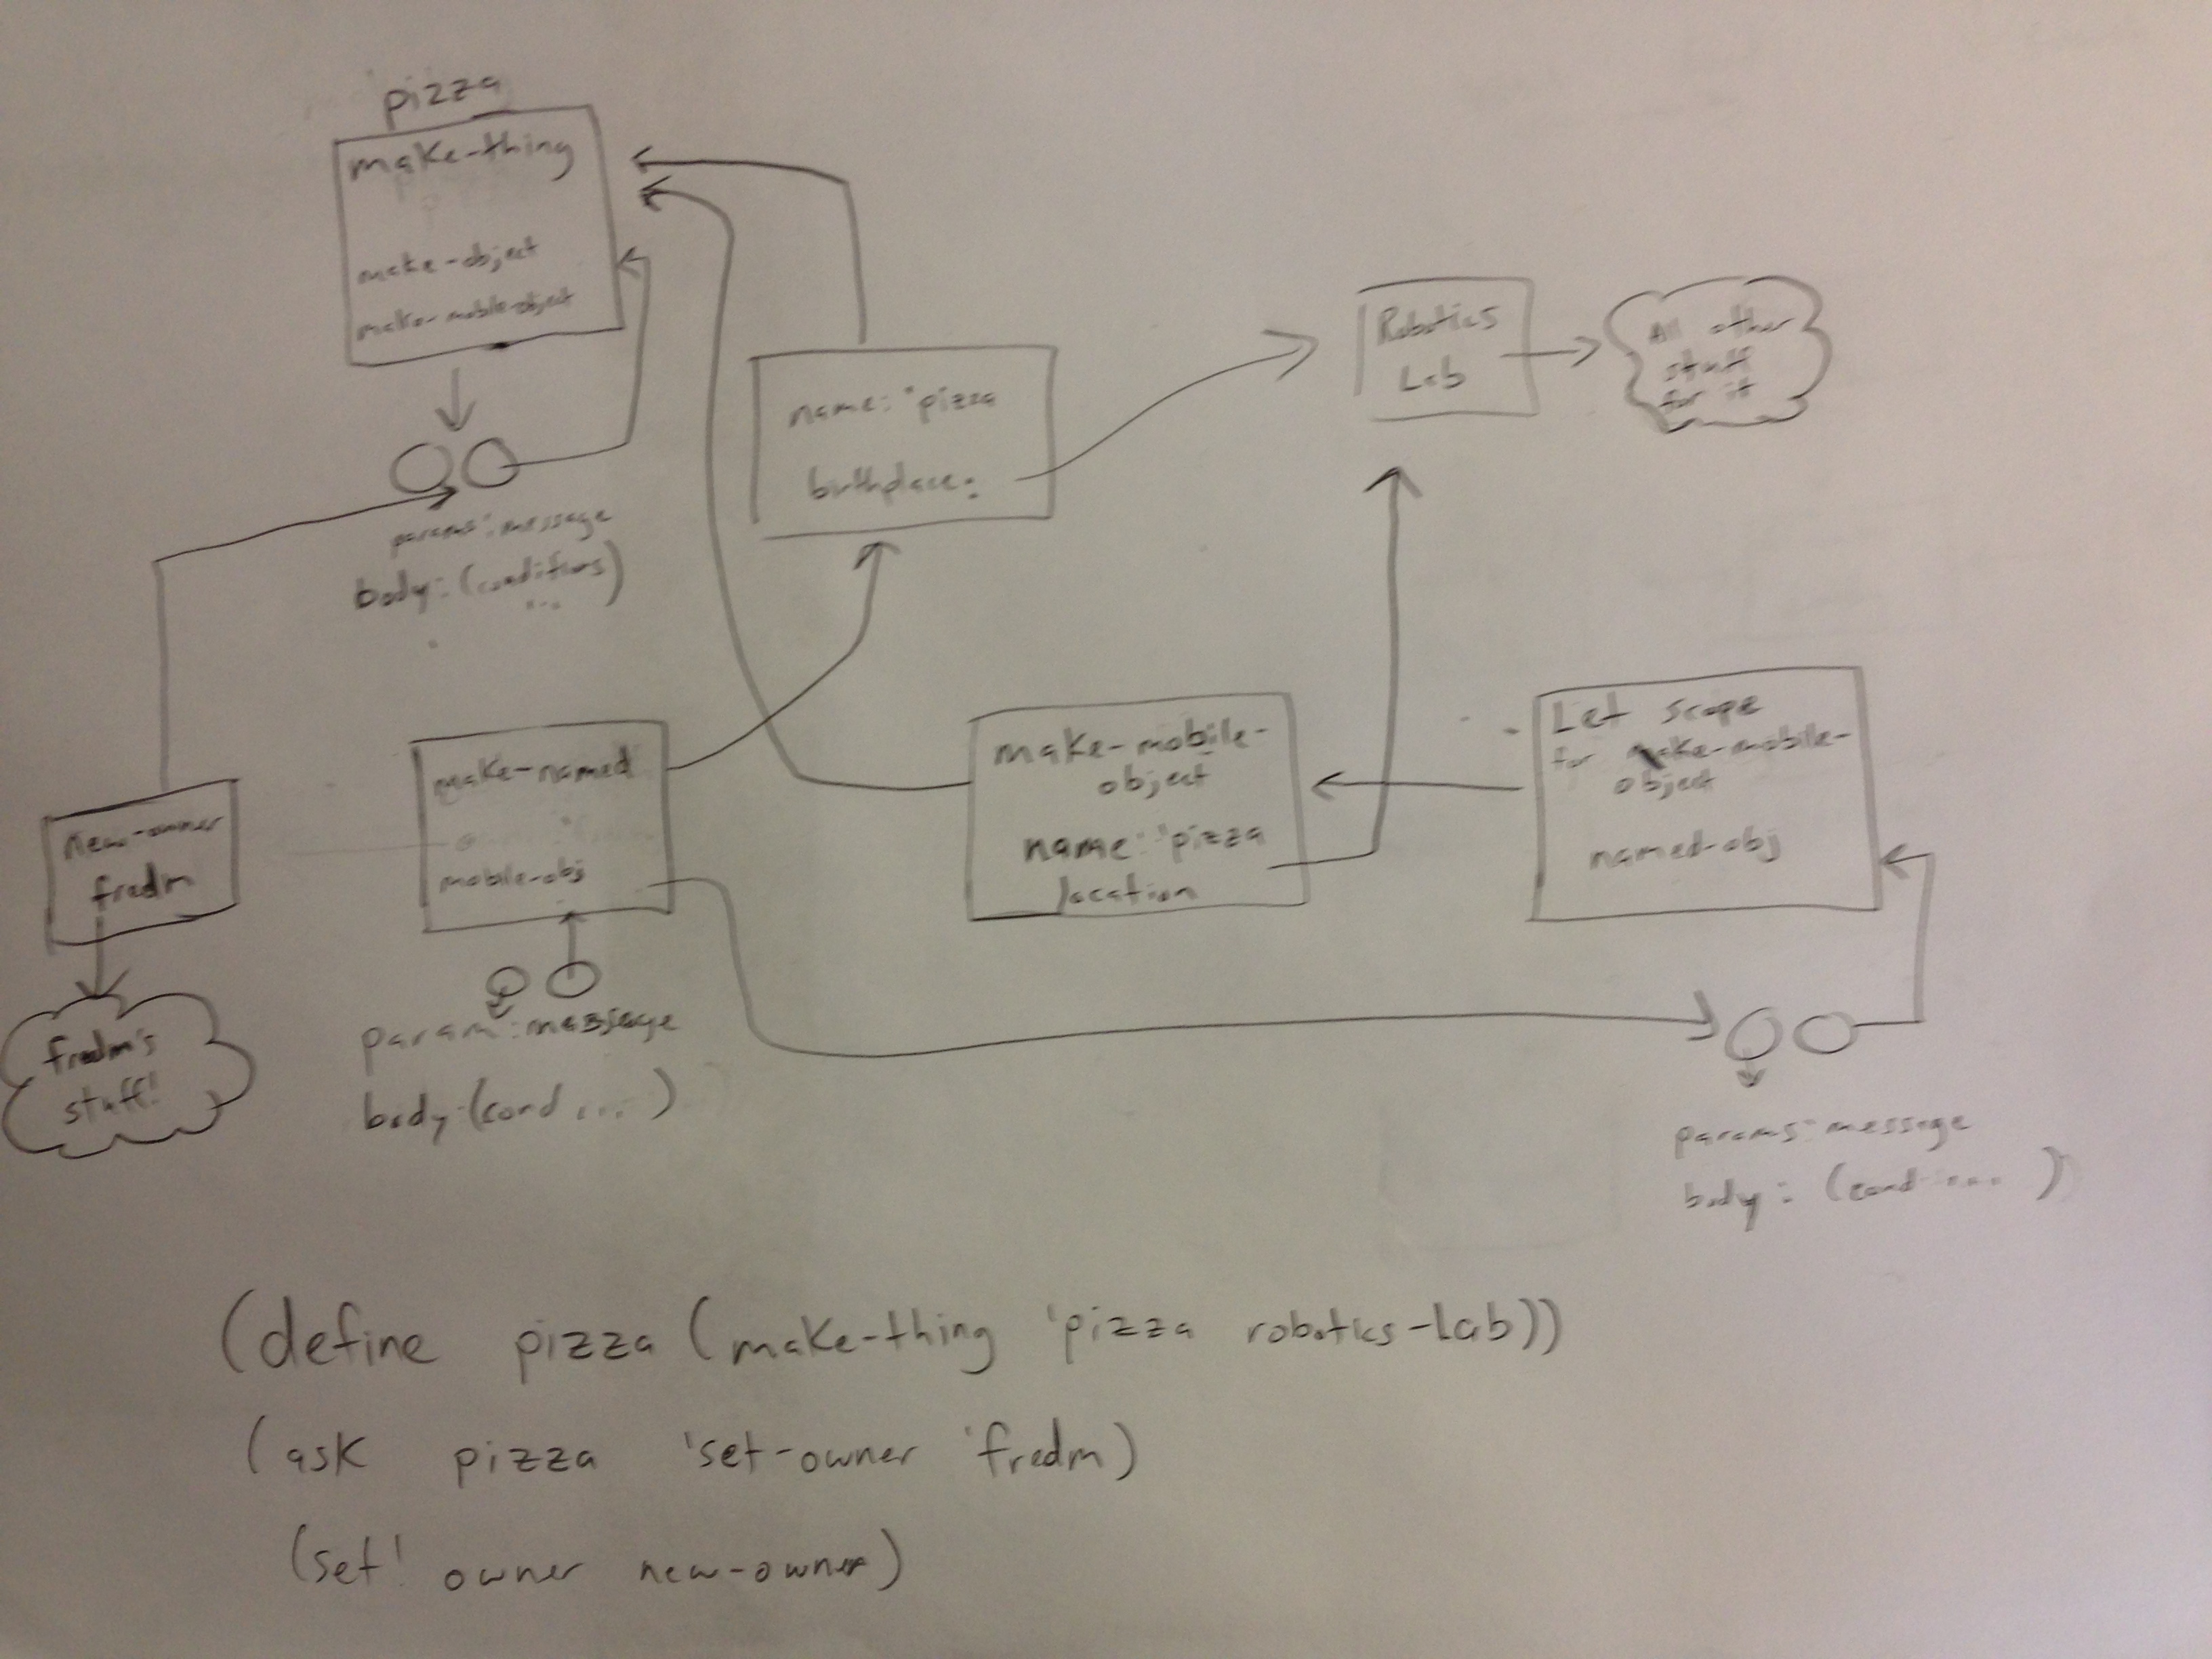 pizza
make-thing
make-object
make-mobile-object
params: message
body: (conditions)
...
name: 'pizza
birthplace:
Robotics
Lab
All other
stuff
for it
new-owner
fredm
fredm's
stuff!
make-named
mobile-obj
param: message
body: (cond ... )
make-mobile-
object
name: 'pizza
location
Let scope
for make-mobile-
object
named-obj
params: message
body: (cond ... )
(define pizza (make-thing 'pizza robotics-Lab))
(ask pizza 'set-owner 'fredm)
(set! owner new-owner)